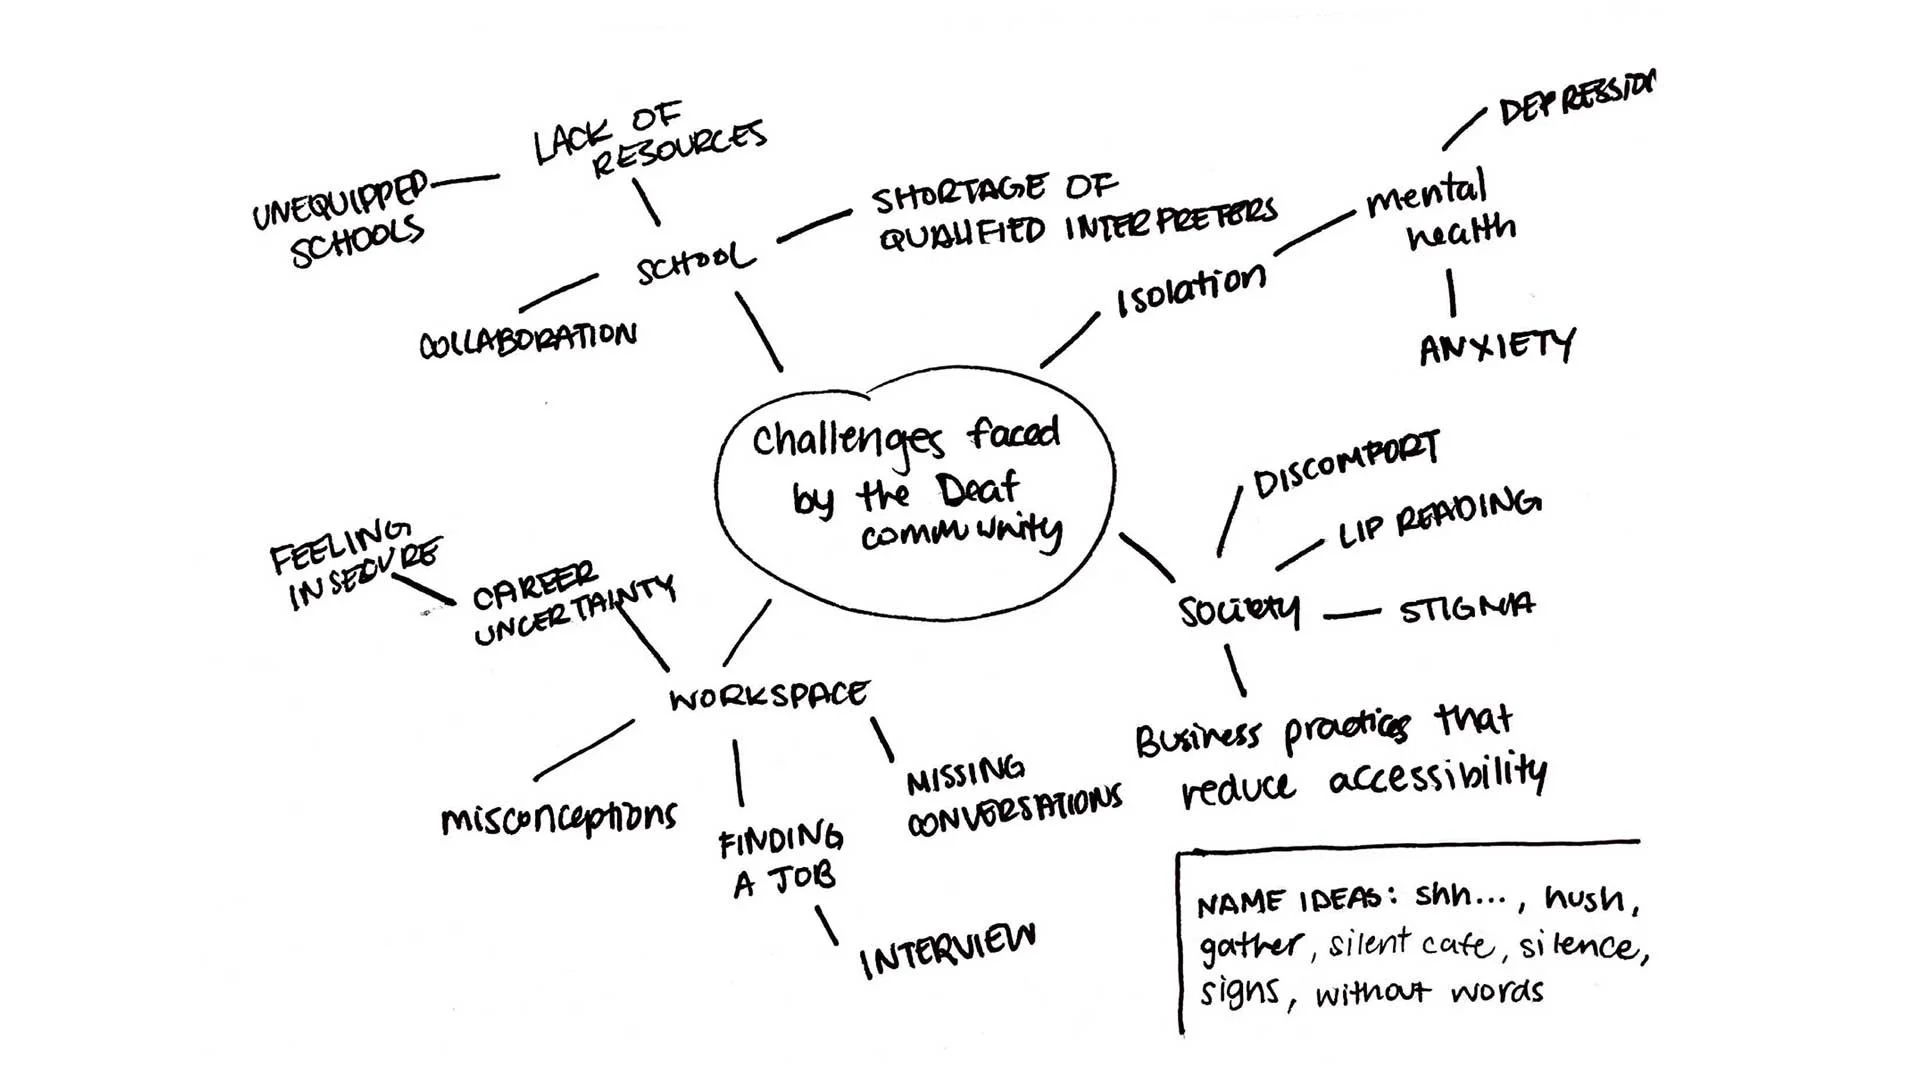 LACK OF
RESOURCES
UNEQUIPPED
SCHOOLS
SHORTAGE OF
QUALIFIED INTERPRETERS
SCHOOL
COLLABORATION
DEPRESSION
mental
health
Isolation
ANXIETY
Challenges faced
by the Deaf
community
DISCOMFORT
LIP READING
SOCIETY
STIGMA
Business practices that
reduce accessibility
FEELING
INSECURE
CAREER
UNCERTAINTY
WORKSPACE
misconceptions
FINDING
A JOB
INTERVIEW
MISSING
CONVERSATIONS
NAME IDEAS: shh..., hush,
gather, silent cafe, silence,
signs, without words